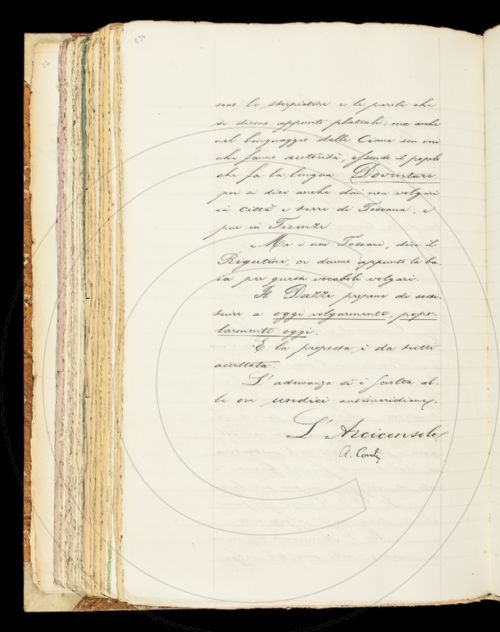 sono le storpiature e le parole che
si dicono appunto plateali; ma anche
nel linguaggio delle Ciane son voci
che fanno autorità, essendo il popolo
che fa la lingua. Doventare
poi si dice anche dai non volgari
in città e terre di Toscana, e
pur in Firenze.
Ma i non Toscani, dice il
Rigutini, ci danno appunto la ba
ia per questi vocaboli volgari.
Il Dazzi propone di sosti
tuire a oggi volgarmente, popo
larmente oggi.
E la proposta è da tutti
accettata.
L'adunanza si è sciolta al
le ore undici antimeridiane.
L'Arciconsolo
A. Conti